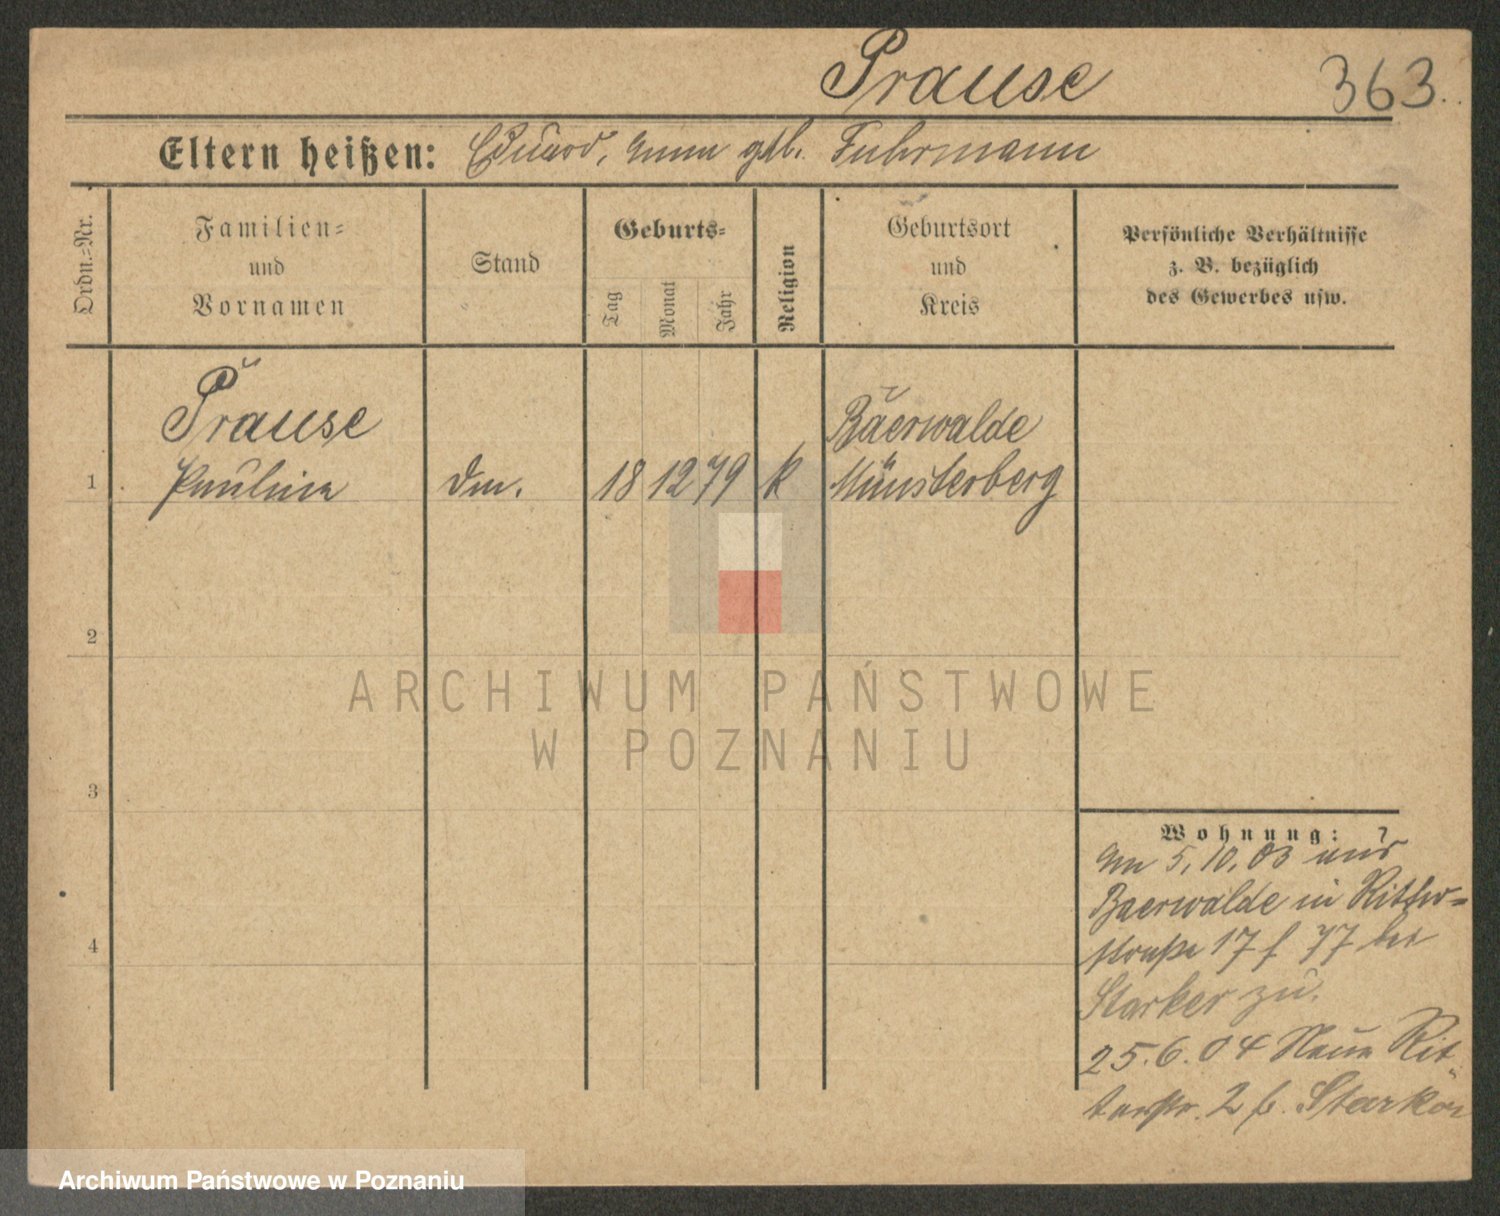 Prause 363.
Eltern heißen: Eduard, Anna geb. Fuhrmann
Ordn.-Nr.
Familien-
und
Vornamen
Stand
Geburts-
Tag
Monat
Jahr
Religion
Geburtsort
und
Kreis
Persönliche Verhältnisse
z. B. bezüglich
des Gewerbes usw.
Prause Baerwalde
1 Paulina 18 12 79 k Münsterberg
2
ARCHIWUM PAŃSTWOWE
W POZNANIU
3
Wohnung:
Am 5.10.03 aus
Baerwalde in Ritter-
straße 17 bei
Starker zu.
25.6.04 Neue Rit-
terstr. 2 b. Starker
4
Archiwum Państwowe w Poznaniu